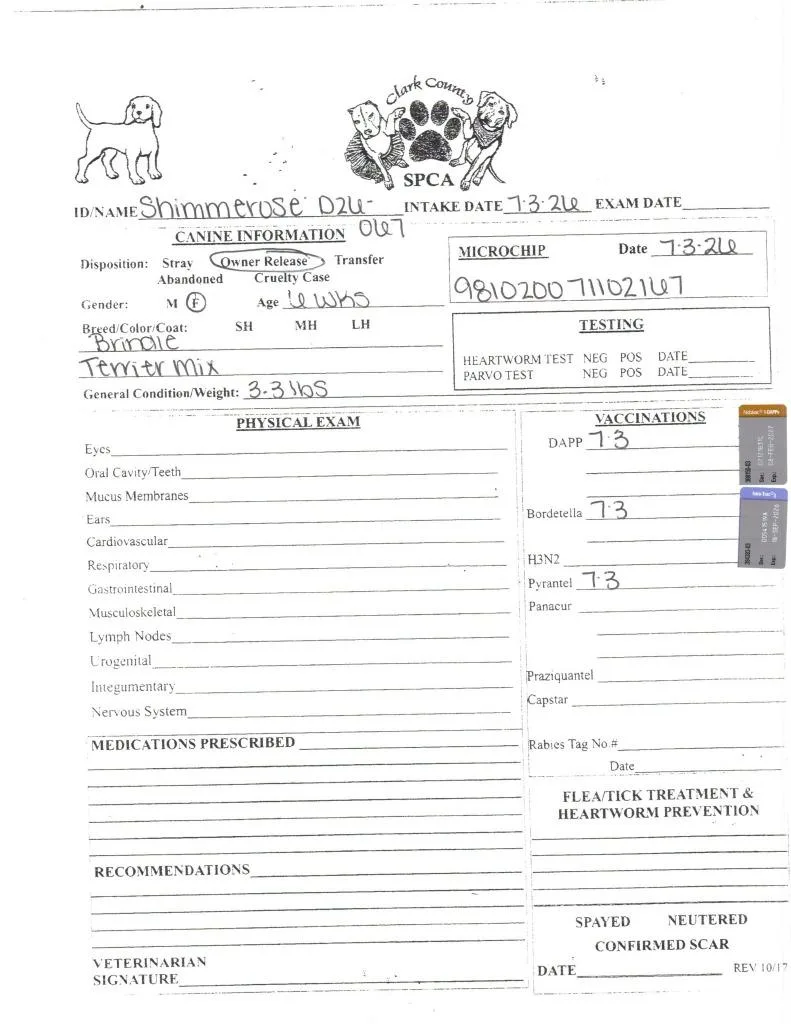 Clark County
SPCA
ID/NAME Shimmerose D26-
067
INTAKE DATE 7-3-26 EXAM DATE
CANINE INFORMATION
Disposition: Stray Owner Release Transfer
Abandoned Cruelty Case
Gender: M F Age 6 wks
Breed/Color/Coat: SH MH LH
Brindle
Terrier mix
General Condition/Weight: 3.3 lbs
MICROCHIP Date 7-3-26
981020071102167
TESTING
HEARTWORM TEST NEG POS DATE
PARVO TEST NEG POS DATE
PHYSICAL EXAM
Eyes
Oral Cavity/Teeth
Mucus Membranes
Ears
Cardiovascular
Respiratory
Gastrointestinal
Musculoskeletal
Lymph Nodes
Urogenital
Integumentary
Nervous System
MEDICATIONS PRESCRIBED
RECOMMENDATIONS
VETERINARIAN
SIGNATURE
VACCINATIONS
DAPP 7-3
Bordetella 7-3
H3N2
Pyrantel 7-3
Panacur
Praziquantel
Capstar
Rabies Tag No.#
Date
FLEA/TICK TREATMENT &
HEARTWORM PREVENTION
SPAYED NEUTERED
CONFIRMED SCAR
DATE REV 10/17